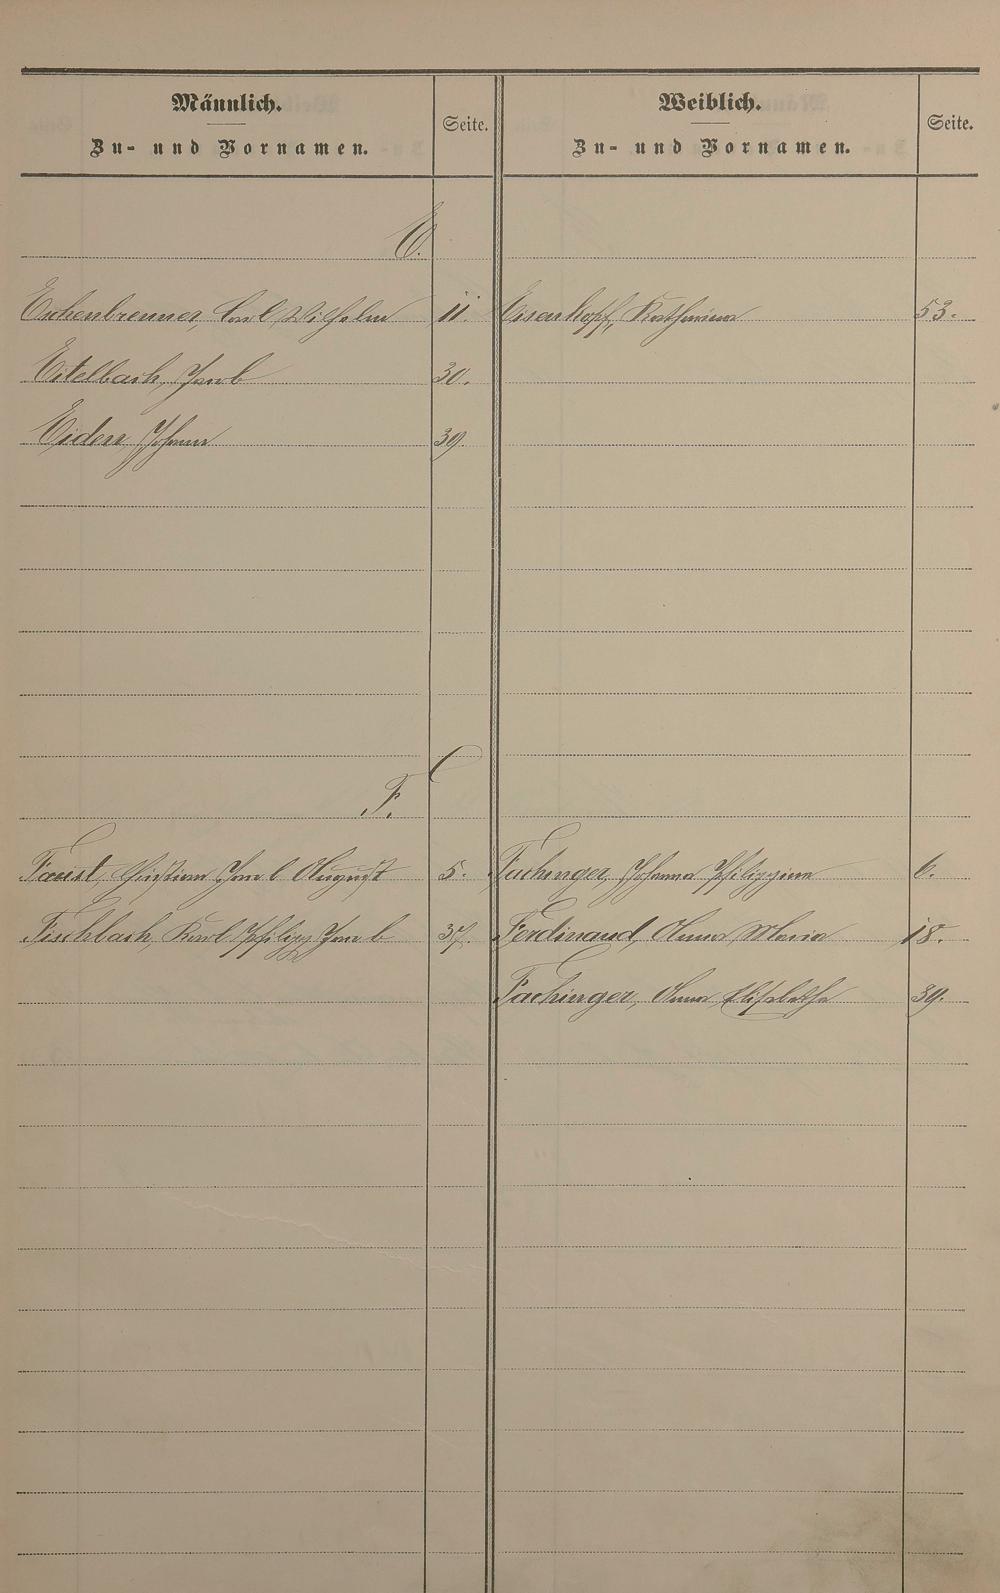 Männlich.
Zu- und Vornamen.
Seite.
Weiblich.
Zu- und Vornamen.
Seite.
E.
Eschenbrenner, Carl Wilhelm 11. Eisenkopf, Katharina 53.
Eitelbach, Jacob 30.
Eiden, Johann 39.
F.
Faust, Christian Jacob August 5. Fachinger, Johanna Philippina 6.
Fischbach, Karl Philipp Jacob 37. Ferdinand, Anna Maria 18.
Fachinger, Anna Elisabetha 39.